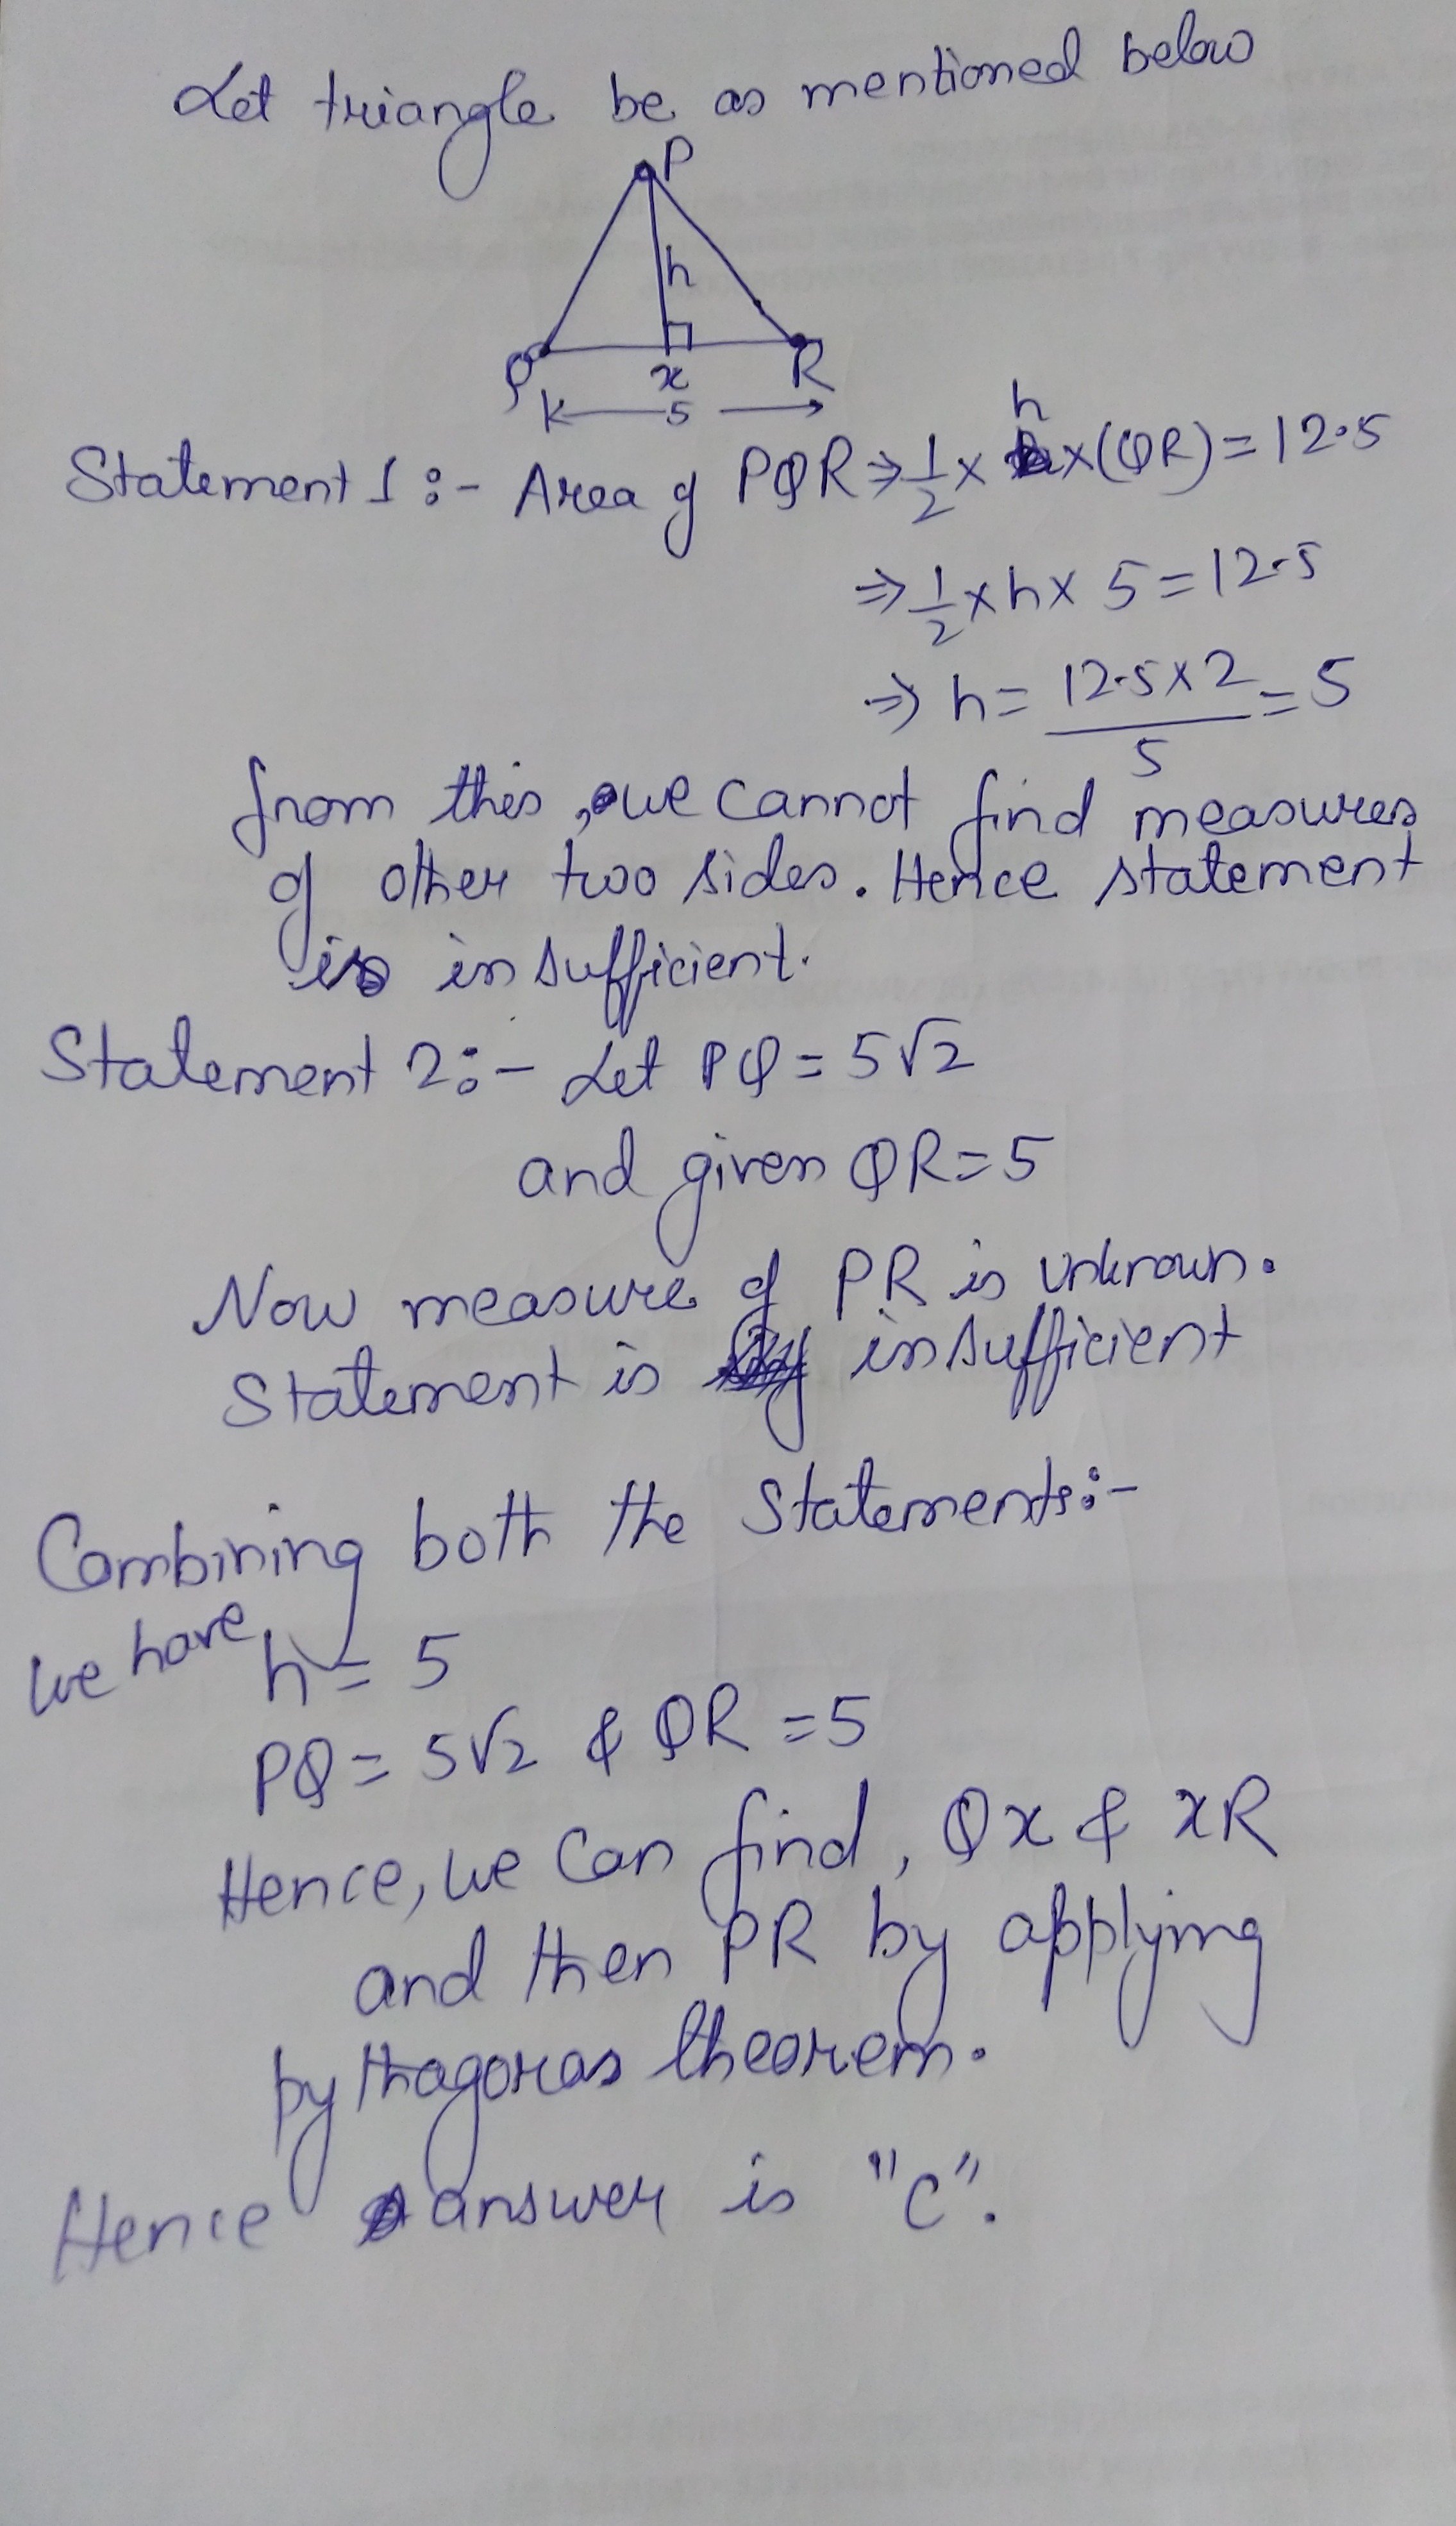 Let triangle be as mentioned below
P
h
Q x R
5
Statement 1 :- Area of PQR ⇒ 1/2 × h × (QR) = 12.5
⇒ 1/2 × h × 5 = 12.5
⇒ h = 12.5 × 2 / 5 = 5
from this, we cannot find measures
of other two sides. Hence statement
is insufficient.
Statement 2 :- Let PQ = 5√2
and given QR = 5
Now measure of PR is unknown.
Statement is insufficient
Combining both the statements :-
we have h = 5
PQ = 5√2 & QR = 5
Hence, we can find, Qx & xR
and then PR by applying
pythagoras theorem.
Hence answer is "C".